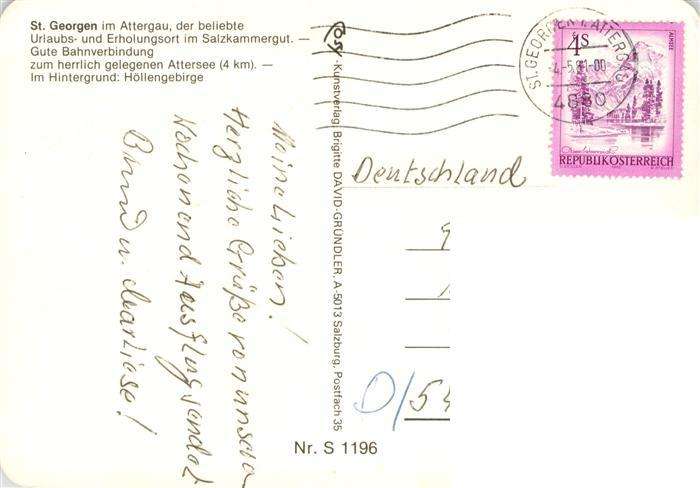 St. Georgen im Attergau, der beliebte
Urlaubs- und Erholungsort im Salzkammergut. —
Gute Bahnverbindung
zum herrlich gelegenen Attersee (4 km). —
Im Hintergrund: Höllengebirge
COSY - Kunstverlag: Brigitte DAVID-GRÜNDLER, A-5013 Salzburg, Postfach 35
ST. GEORGEN I. ATTERGAU
4880
4S
ALMSEE
REPUBLIK ÖSTERREICH
Meine Lieben!
Herzliche Grüße von unserm
Wochenend
Ausflug sendet
und u. Marliese!
Deutschland
D/54
Nr. S 1196